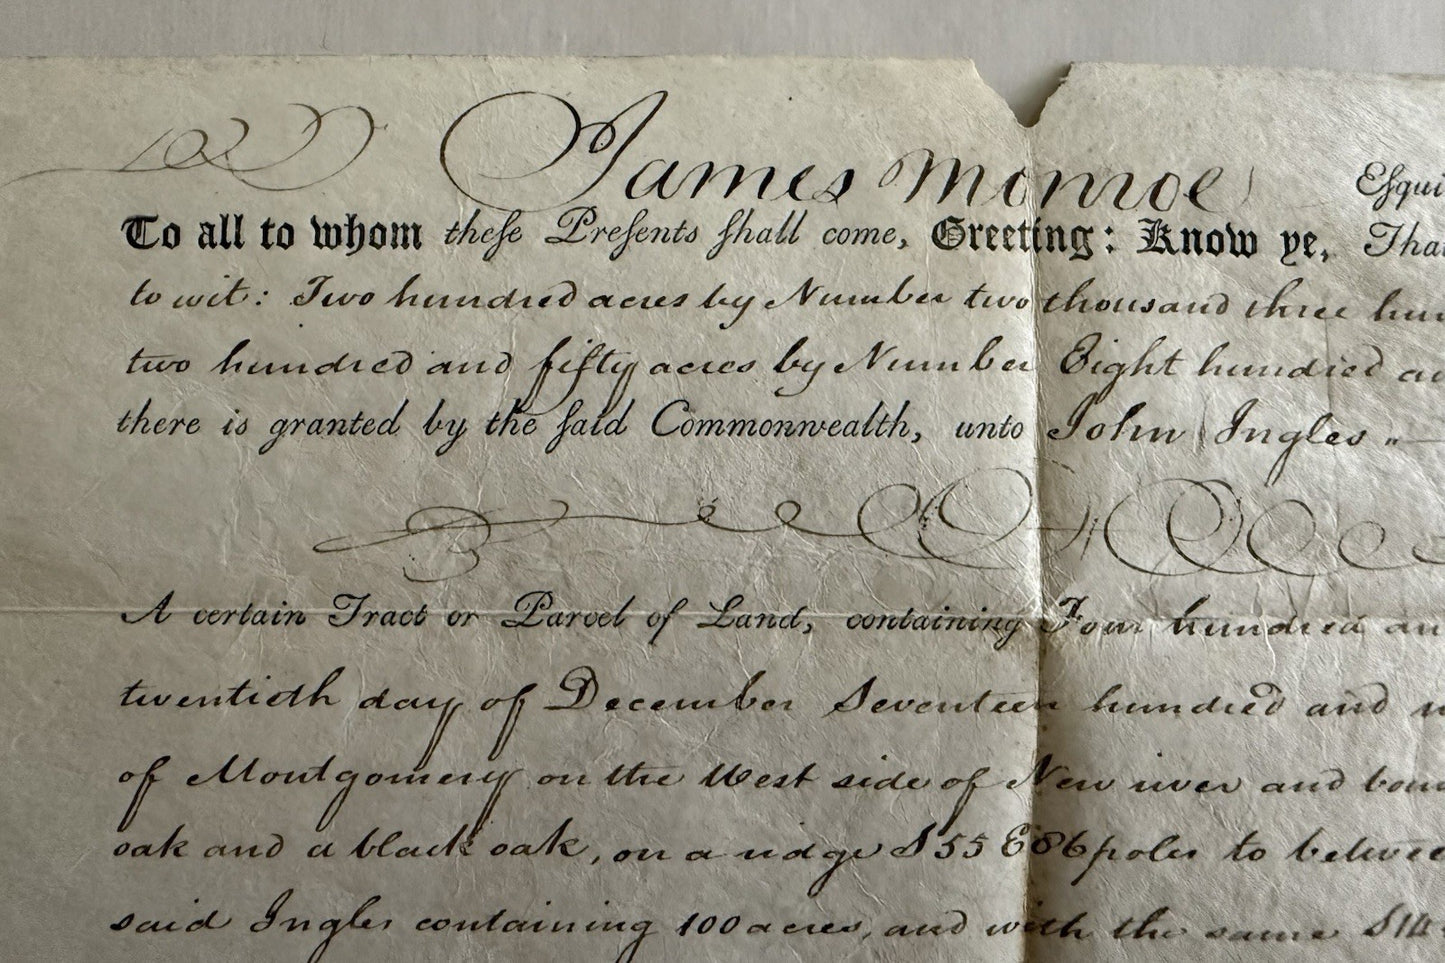 James Monroe Esqui
To all to whom theſe Preſents ſhall come, Greeting: Know ye, Tha
to wit: Two hundred acres by Number two thousand three hun
two hundred and fifty acres by Number Eight hundred an
there is granted by the ſaid Commonwealth, unto John Ingles
A certain Tract or Parcel of Land, containing Four hundred an
twentieth day of December Seventeen hundred and n
of Montgomery on the West side of New river and boun
oak and a black oak, on a ridge S 55 E 86 poles to betwee
said Ingles containing 100 acres, and with the same S 14